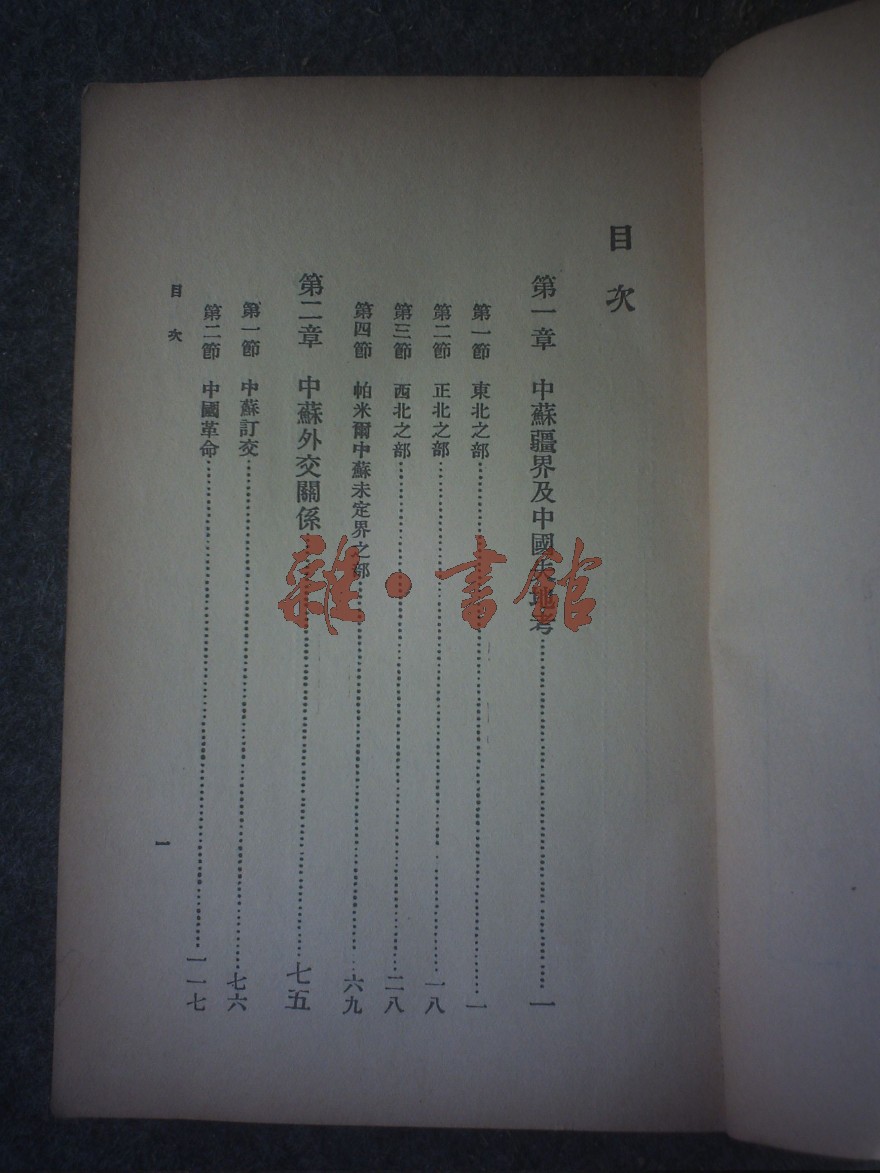 目次
第一章 中蘇疆界及中國失地考……一
第一節 東北之部……一
第二節 正北之部……一八
第三節 西北之部……二八
第四節 帕米爾中蘇未定界之部……六九
第二章 中蘇外交關係……七五
第一節 中蘇訂交……七六
第二節 中國革命……一一七
目次
一
雜·書館